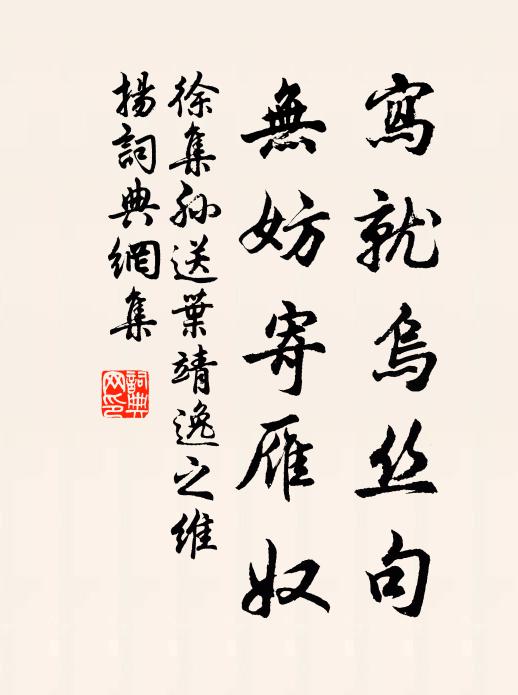 寫就烏丝句
無妨寄雁奴
徐集孙送葉靖逸之維
揚詞典網集
詞典
网印